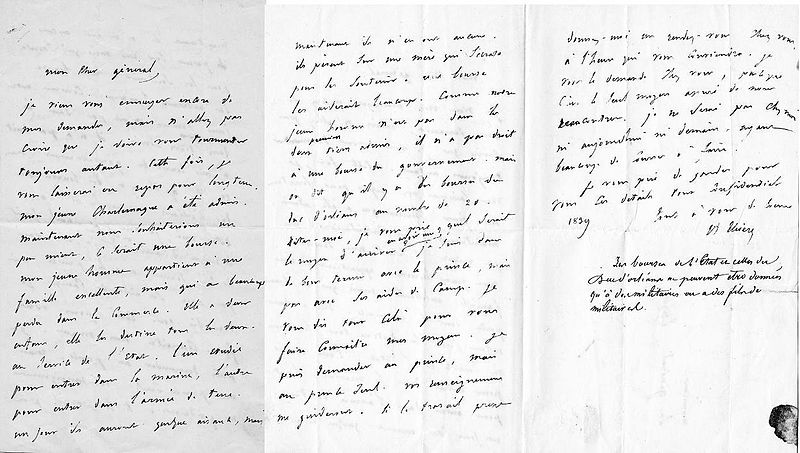 mon cher général,
je viens vous ennuyer encore de
mes demandes, mais n'allez pas
croire que je doive vous tourmenter
toujours autant. Cette fois, je
vous laisserai en repos pour longtems.
mon jeune Charlemagne a été admis.
maintenant nous souhaiterions un
pas mieux, ce serait une bourse.
mon jeune homme appartient à une
famille excellente, mais qui a beaucoup
perdu dans le commerce. Elle a deux
enfans, elle les destine tous les deux
au service de l'Etat. l'un étudie
pour entrer dans la marine, l'autre
pour entrer dans l'armée de terre.
un jour ils auront quelque aisance, mais
maintenant ils n'en ont aucune.
ils pèsent sur une mère qui
pour les soutenir. une bourse
les aiderait beaucoup. Comme notre
jeune homme n'est pas dans le
premier
tiers admis, il n'a pas droit
à une bourse du gouvernement. mais
on dit qu'il y a des bourses du
duc d'orléans au nombre de 20.
dites-moi, je vous prie, quel serait
le moyen d'arriver. je suis dans
de bons termes avec le prince, mais
pas avec ses aides de camp. je
vous dis tout cela pour vous
faire connaître mes moyens. je
puis demander au prince, mais
au prince seul. vos renseignemens
me guideront. si le travail presse
donnez-moi un rendez-vous chez vous,
à l'heure qui vous conviendra. je
vous le demande chez vous, parceque
c'est le seul moyen assuré de nous
rencontrer. je ne serai pas chez moi
ni aujourd'hui ni demain, ayant
beaucoup de courses à faire.
Je vous prie de garder pour
vous ces détails tout confidentiels
1839 tout à vous de coeur
A Thiers
Les bourses de l'Etat et celles du
Duc d'orléans ne peuvent être données
qu'à des militaires ou a des fils de
militaires.